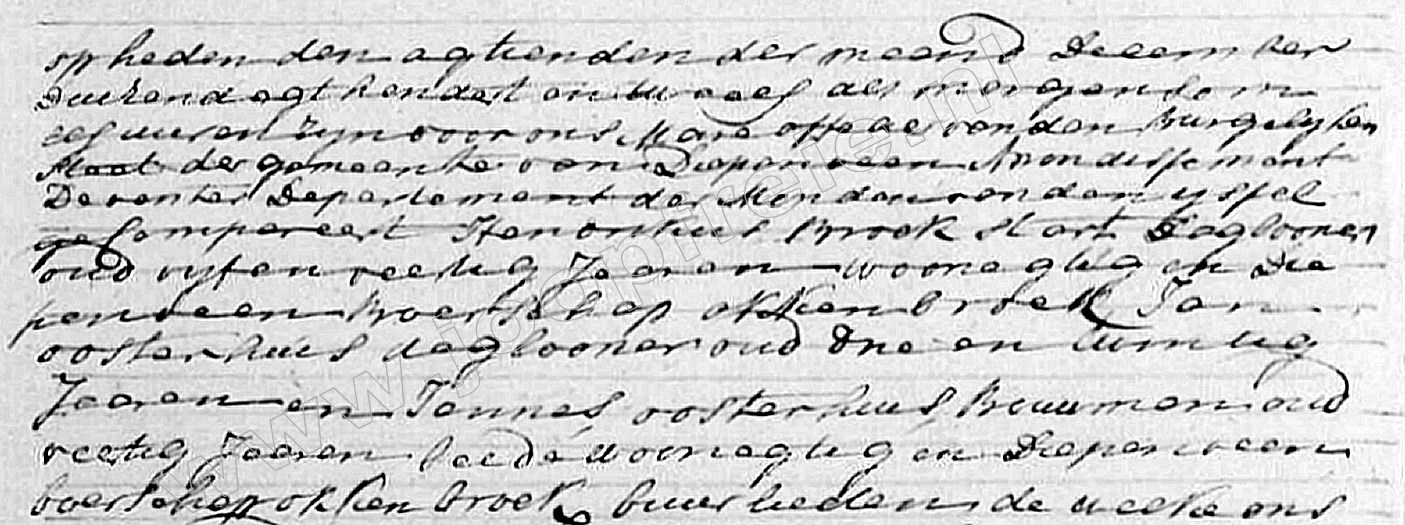 op heden den agtienden der maand December
Duizend agt hondert en twaalf des morgens om
elf uuren zyn voor ons Mare offecier van den Burgelyken
Staat der gemeente van Diepenveen Arrondissement
Deventer Departement der Monden van den yssel
gecompareert Hendrikus Broek start Daglooner
oud vyf en veetig Jaaren woonagtig in Die
penveen Boerschap okkenbroek Jan
oosterhuis daglooner oud Drie en tuintig
Jaaren en Jannes oosterhuis Bouwman oud
veetig Jaaren beede woonagtig in Diepenveen
boerschap okkenbroek buurlieden de welke ons
www.jooprieie.nl